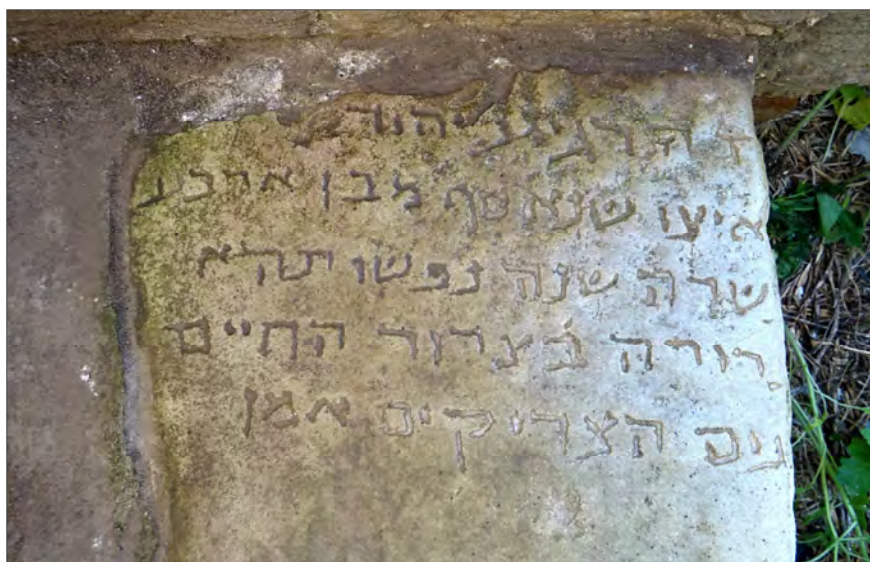 שנאסף מבן ארבע
שרה שנה נפשו תהא
רורה בצרור החיים
עם הצדיקים אמן